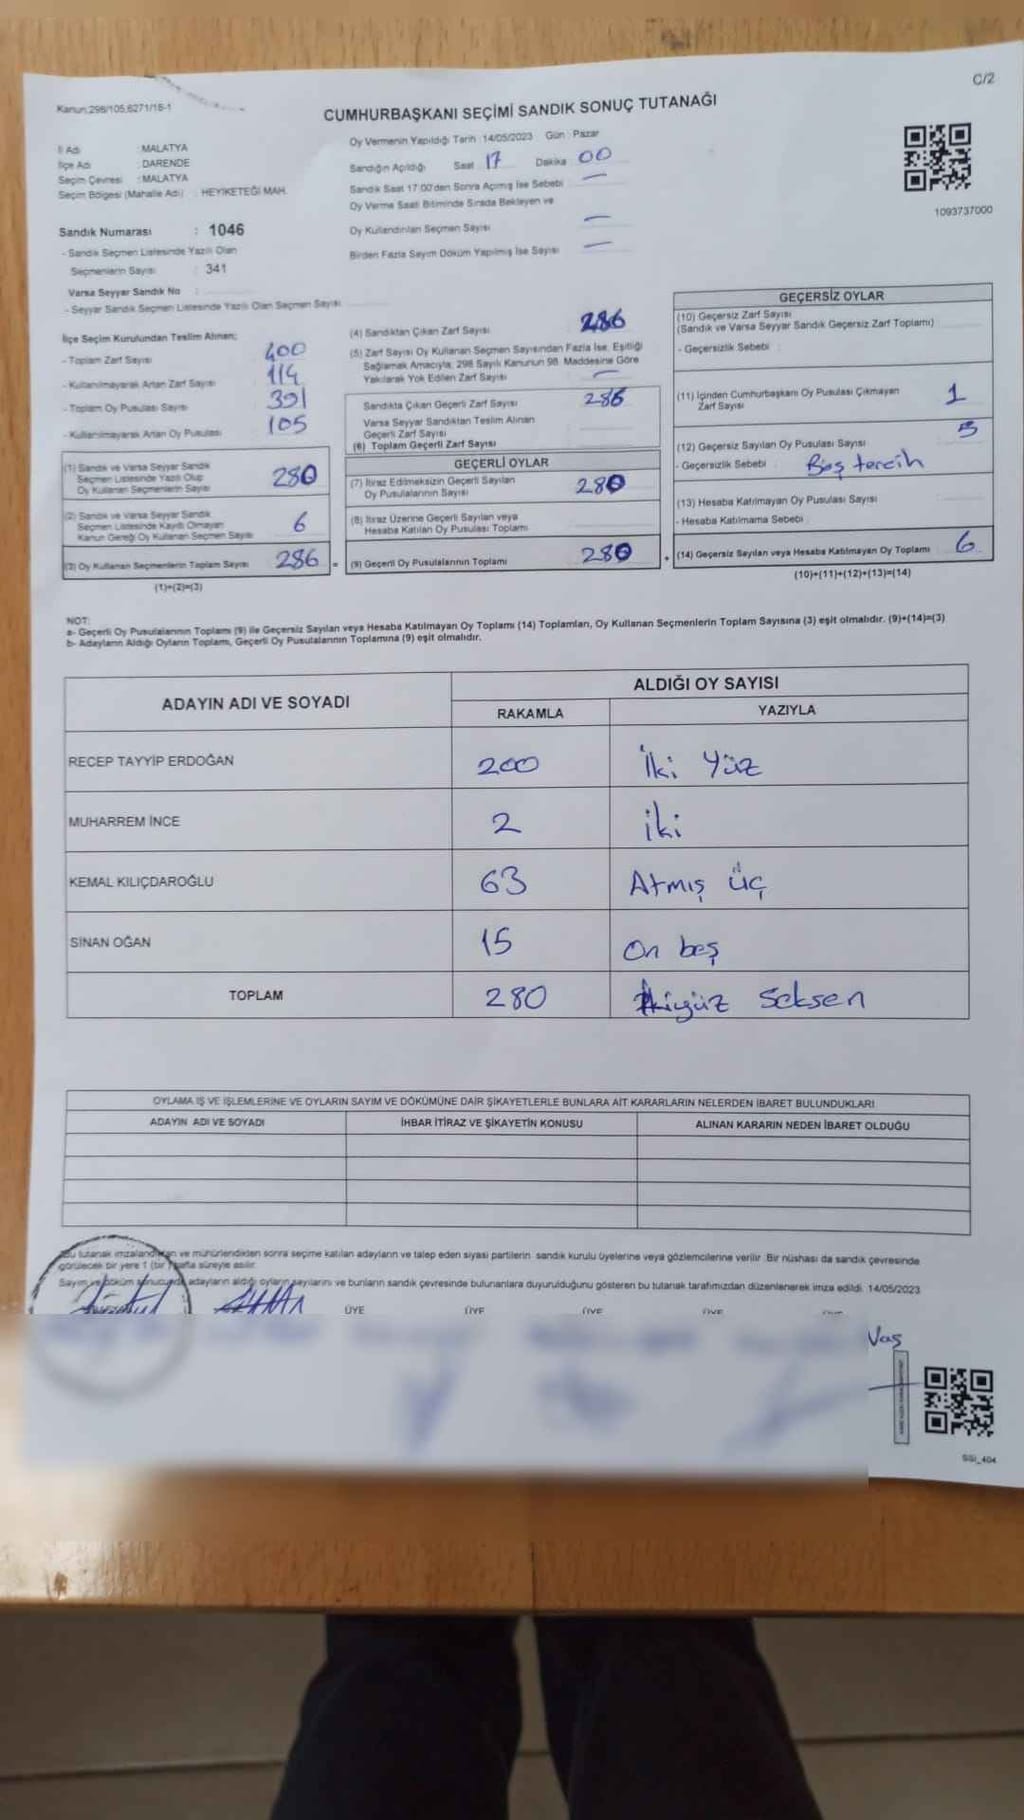 C/2
Kanun:298/105,6271/16-1
CUMHURBAŞKANI SEÇİMİ SANDIK SONUÇ TUTANAĞI
İl Adı : MALATYA
İlçe Adı : DARENDE
Seçim Çevresi : MALATYA
Seçim Bölgesi (Mahalle Adı) : HEYİKETEĞİ MAH.
Sandık Numarası : 1046
- Sandık Seçmen Listesinde Yazılı Olan
Seçmenlerin Sayısı : 341
Varsa Seyyar Sandık No :
- Seyyar Sandık Seçmen Listesinde Yazılı Olan Seçmen Sayısı
Oy Vermenin Yapıldığı Tarih 14/05/2023 Gün : Pazar
Sandığın Açıldığı Saat 17 Dakika 00
Sandık Saat 17.00'den Sonra Açılmış İse Sebebi —
Oy Verme Saati Bitiminde Sırada Bekleyen ve
Oy Kullandırılan Seçmen Sayısı —
Birden Fazla Sayım Döküm Yapılmış İse Sayısı —
1093737000
İlçe Seçim Kurulundan Teslim Alınan;
- Toplam Zarf Sayısı 400
- Kullanılmayarak Artan Zarf Sayısı 114
- Toplam Oy Pusulası Sayısı 391
- Kullanılmayarak Artan Oy Pusulası 105
(1) Sandık ve Varsa Seyyar Sandık
Seçmen Listesinde Yazılı Olup
Oy Kullanan Seçmenlerin Sayısı 280
(2) Sandık ve Varsa Seyyar Sandık
Seçmen Listesinde Kayıtlı Olmayan
Kanun Gereği Oy Kullanan Seçmen Sayısı 6
(3) Oy Kullanan Seçmenlerin Toplam Sayısı 286 =
(1)+(2)=(3)
(4) Sandıktan Çıkan Zarf Sayısı 286
(5) Zarf Sayısı Oy Kullanan Seçmen Sayısından Fazla İse, Eşitliği
Sağlamak Amacıyla, 298 Sayılı Kanunun 98. Maddesine Göre
Yakılarak Yok Edilen Zarf Sayısı —
Sandıkta Çıkan Geçerli Zarf Sayısı 286
Varsa Seyyar Sandıktan Teslim Alınan
Geçerli Zarf Sayısı
(6) Toplam Geçerli Zarf Sayısı
GEÇERLİ OYLAR
(7) İtiraz Edilmeksizin Geçerli Sayılan
Oy Pusulalarının Sayısı 280
(8) İtiraz Üzerine Geçerli Sayılan veya
Hesaba Katılan Oy Pusulası Toplamı
(9) Geçerli Oy Pusulalarının Toplamı 280 +
GEÇERSİZ OYLAR
(10) Geçersiz Zarf Sayısı
(Sandık ve Varsa Seyyar Sandık Geçersiz Zarf Toplamı)
- Geçersizlik Sebebi :
(11) İçinden Cumhurbaşkanı Oy Pusulası Çıkmayan
Zarf Sayısı 1
(12) Geçersiz Sayılan Oy Pusulası Sayısı 5
- Geçersizlik Sebebi : Boş tercih
(13) Hesaba Katılmayan Oy Pusulası Sayısı
- Hesaba Katılmama Sebebi :
(14) Geçersiz Sayılan veya Hesaba Katılmayan Oy Toplamı 6
(10)+(11)+(12)+(13)=(14)
NOT:
a- Geçerli Oy Pusulalarının Toplamı (9) ile Geçersiz Sayılan veya Hesaba Katılmayan Oy Toplamı (14) Toplamları, Oy Kullanan Seçmenlerin Toplam Sayısına (3) eşit olmalıdır. (9)+(14)=(3)
b- Adayların Aldığı Oyların Toplamı, Geçerli Oy Pusulalarının Toplamına (9) eşit olmalıdır.
ADAYIN ADI VE SOYADI
ALDIĞI OY SAYISI
RAKAMLA YAZIYLA
RECEP TAYYİP ERDOĞAN 200 İki Yüz
MUHARREM İNCE 2 iki
KEMAL KILIÇDAROĞLU 63 Atmış üç
SİNAN OĞAN 15 On beş
TOPLAM 280 ikiyüz Seksen
OYLAMA İŞ VE İŞLEMLERİNE VE OYLARIN SAYIM VE DÖKÜMÜNE DAİR ŞİKAYETLERLE BUNLARA AİT KARARLARIN NELERDEN İBARET BULUNDUKLARI
ADAYIN ADI VE SOYADI İHBAR İTİRAZ VE ŞİKAYETİN KONUSU ALINAN KARARIN NEDEN İBARET OLDUĞU
Bu tutanak imzalandıktan ve mühürlendikten sonra seçime katılan adayların ve talep eden siyasi partilerin sandık kurulu üyelerine veya gözlemcilerine verilir. Bir nüshası da sandık çevresinde
görülecek bir yere 1 (bir) hafta süreyle asılır.
Sayım ve döküm sonucunda adayların aldığı oyların sayılarını ve bunların sandık çevresinde bulunanlara duyurulduğunu gösteren bu tutanak tarafımızdan düzenlenerek imza edildi. 14/05/2023
ÜYE ÜYE ÜYE ÜYE ÜYE
Vaş
SSI_404